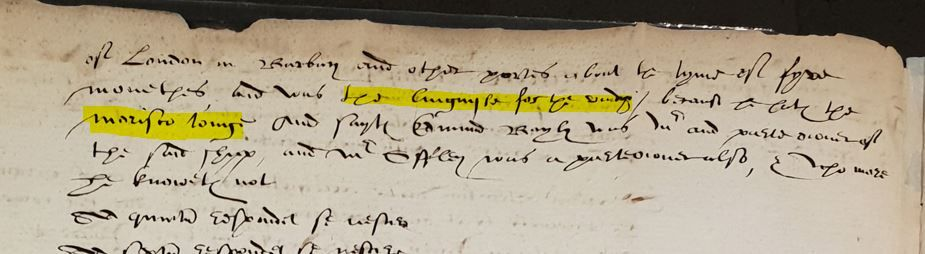 of London in Barbary and other portes about the tyme of fyve
monethes and was the linguiste for the voiadg, because he hath the
morisco tounge And sayth Edmund Bayly was Mr and parte owner of
the said shipp, and Mr Offley was a parteowner also, & who more
he knoweth not
Ad quintum respondet se nescire
Ad respondet se nescire